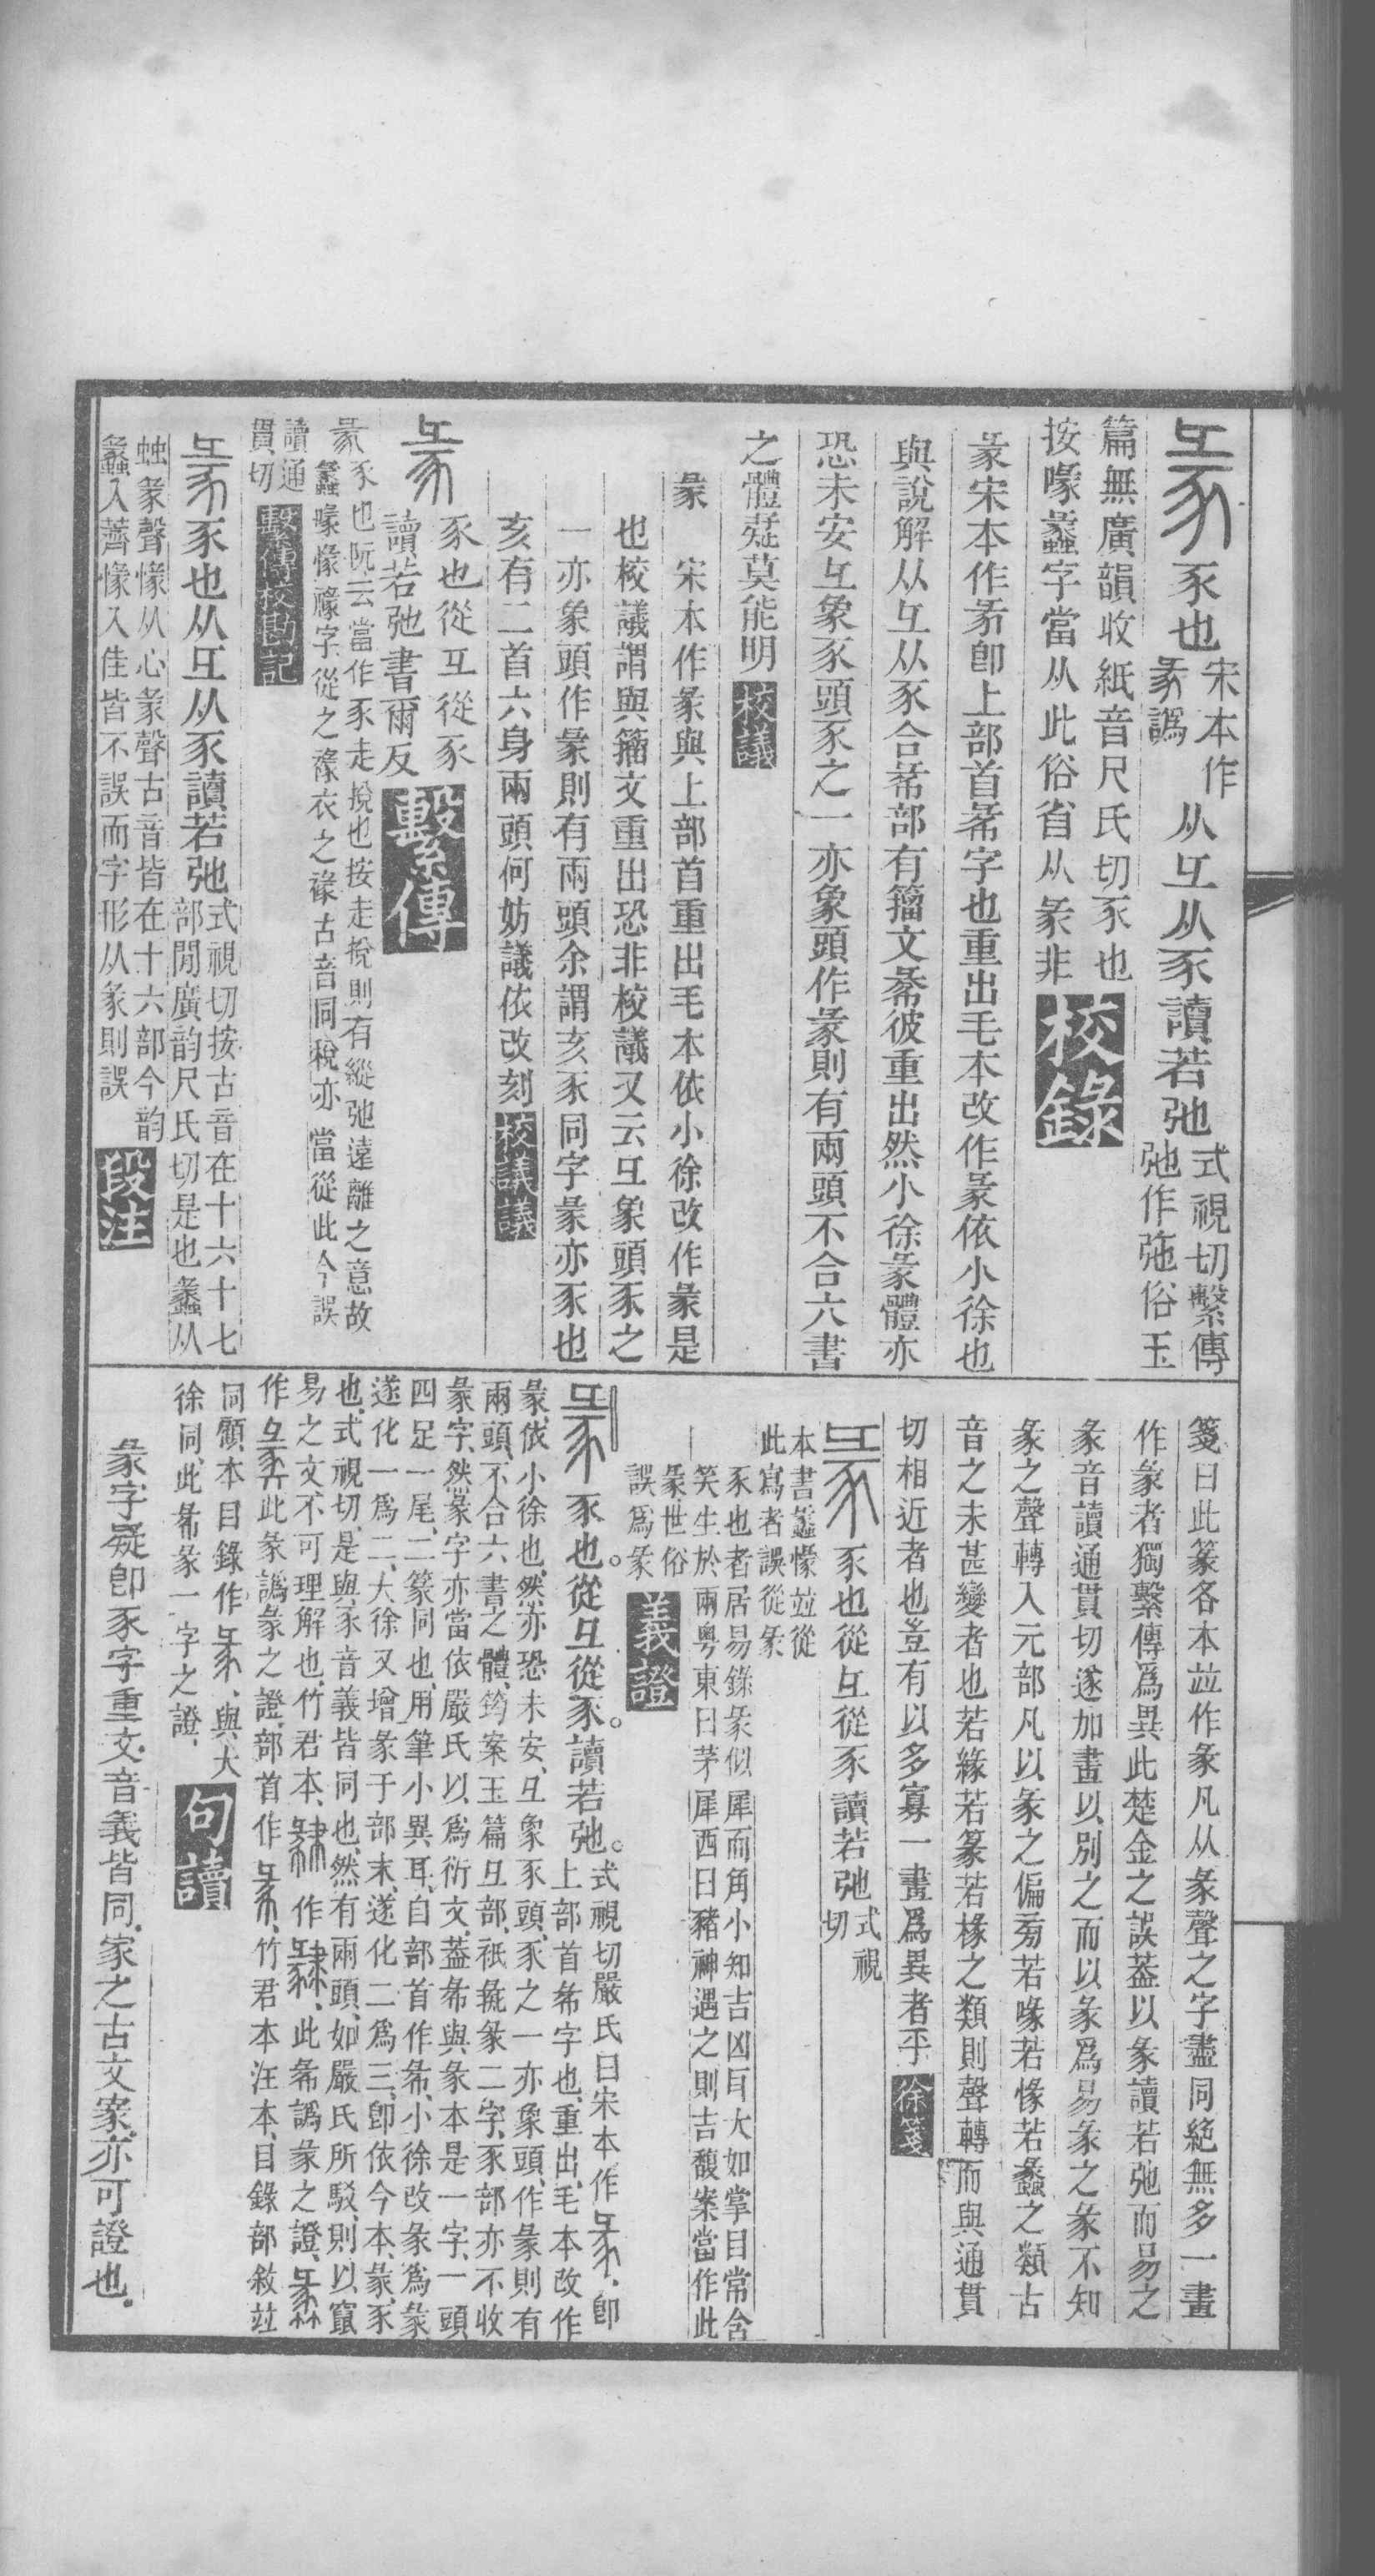 豕也宋本作
㣇譌从彑从豕讀若弛式視切繫傳
弛作㢮俗玉
篇無廣韻收紙音尺氏切豕也
按喙蠡字當从此俗省从彖非校錄
彖宋本作㣇卽上部首㣇字也重出毛本改作彖依小徐也
與說解从彑从豕合㣇部有籀文㣇彼重出然小徐彖體亦
恐未安彑象豕頭豕之一亦象頭作彖則有兩頭不合六書
之體疑莫能明校議
彖 宋本作彖與上部首重出毛本依小徐改作彖是
也校議謂與籀文重出恐非校議又云彑象頭豕之
一亦象頭作彖則有兩頭余謂亥豕同字彖亦豕也
亥有二首六身兩頭何妨議依改刻校議議
豕也從彑從豕
讀若弛書爾反繫傳
彖豕也阮云當作豕走挩也按走挩則有縱弛遠離之意故
蠡喙㥟禒字從之褖衣之褖古音同稅亦當從此今誤
讀通
貫切繫傳校勘記
豕也从彑从豕讀若弛式視切按古音在十六十七
部閒廣韵尺氏切是也蠡从
䖵彖聲㥟从心彖聲古音皆在十六部今韵
蠡入薺㥟入佳皆不誤而字形从彖則誤段注
箋曰此篆各本竝作彖凡从彖聲之字盡同絶無多一畫
作彖者獨繫傳爲異此楚金之誤葢以彖讀若弛而易之
彖音讀通貫切遂加畫以別之而以彖爲易彖之彖不知
彖之聲轉入元部凡以彖之偏旁若喙若㥟若蠡之類古
音之未甚變者也若緣若篆若椽之類則聲轉而與通貫
切相近者也豈有以多寡一畫爲異者乎徐箋
豕也從彑從豕讀若弛式視
切
本書蠡㥟竝從
此寫者誤從彖
豕也者居易錄彖似犀而角小知吉凶耳大如掌目常含
笑生於兩粵東曰茅犀西曰豬神遇之則吉馥案當作此
彖世俗
誤爲彖義證
豕也。從彑從豕。讀若弛。式視切嚴氏曰宋本作㣇、卽
上部首㣇字也、重出、毛本改作
彖、依小徐也、然亦恐未安、彑象豕頭、豕之一亦象頭、作彖則有
兩頭、不合六書之體、筠案玉篇彑部、祇彘彖二字、豕部亦不收
彖字、然彖字亦當依嚴氏以爲衍文、葢㣇與彖本是一字、一頭
四足一尾、二篆同也、用筆小異耳、自部首作㣇、小徐改彖爲彖
遂化一爲二、大徐又增彖于部末、遂化二爲三、卽依今本、彖、豕
也、式視切、是與豕音義皆同也、然有兩頭、如嚴氏所駁、則以竄
易之文不可理解也、竹君本、作、此㣇譌彖之證、
作此彖譌彖之證、部首作、竹君本汪本、目錄部敘竝
同、顧本目錄作、與大
徐同、此㣇彖一字之證、句讀
彖字疑卽豕字重文、音義皆同、家之古文家、亦可證也、